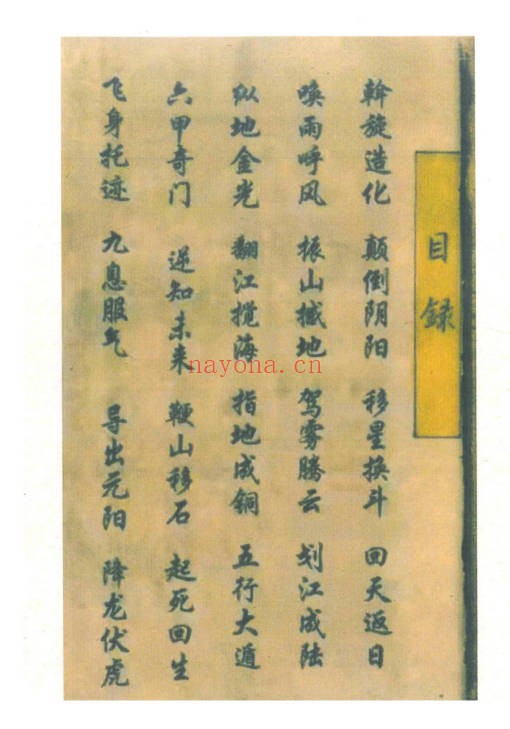 目录
斡旋造化 颠倒阴阳 移星换斗 回天返日
唤雨呼风 振山撼地 驾雾腾云 划江成陆
纵地金光 翻江搅海 指地成钢 五行大遁
六甲奇门 逆知未来 鞭山移石 起死回生
飞身托迹 九息服气 导出元阳 降龙伏虎
nayona.cn